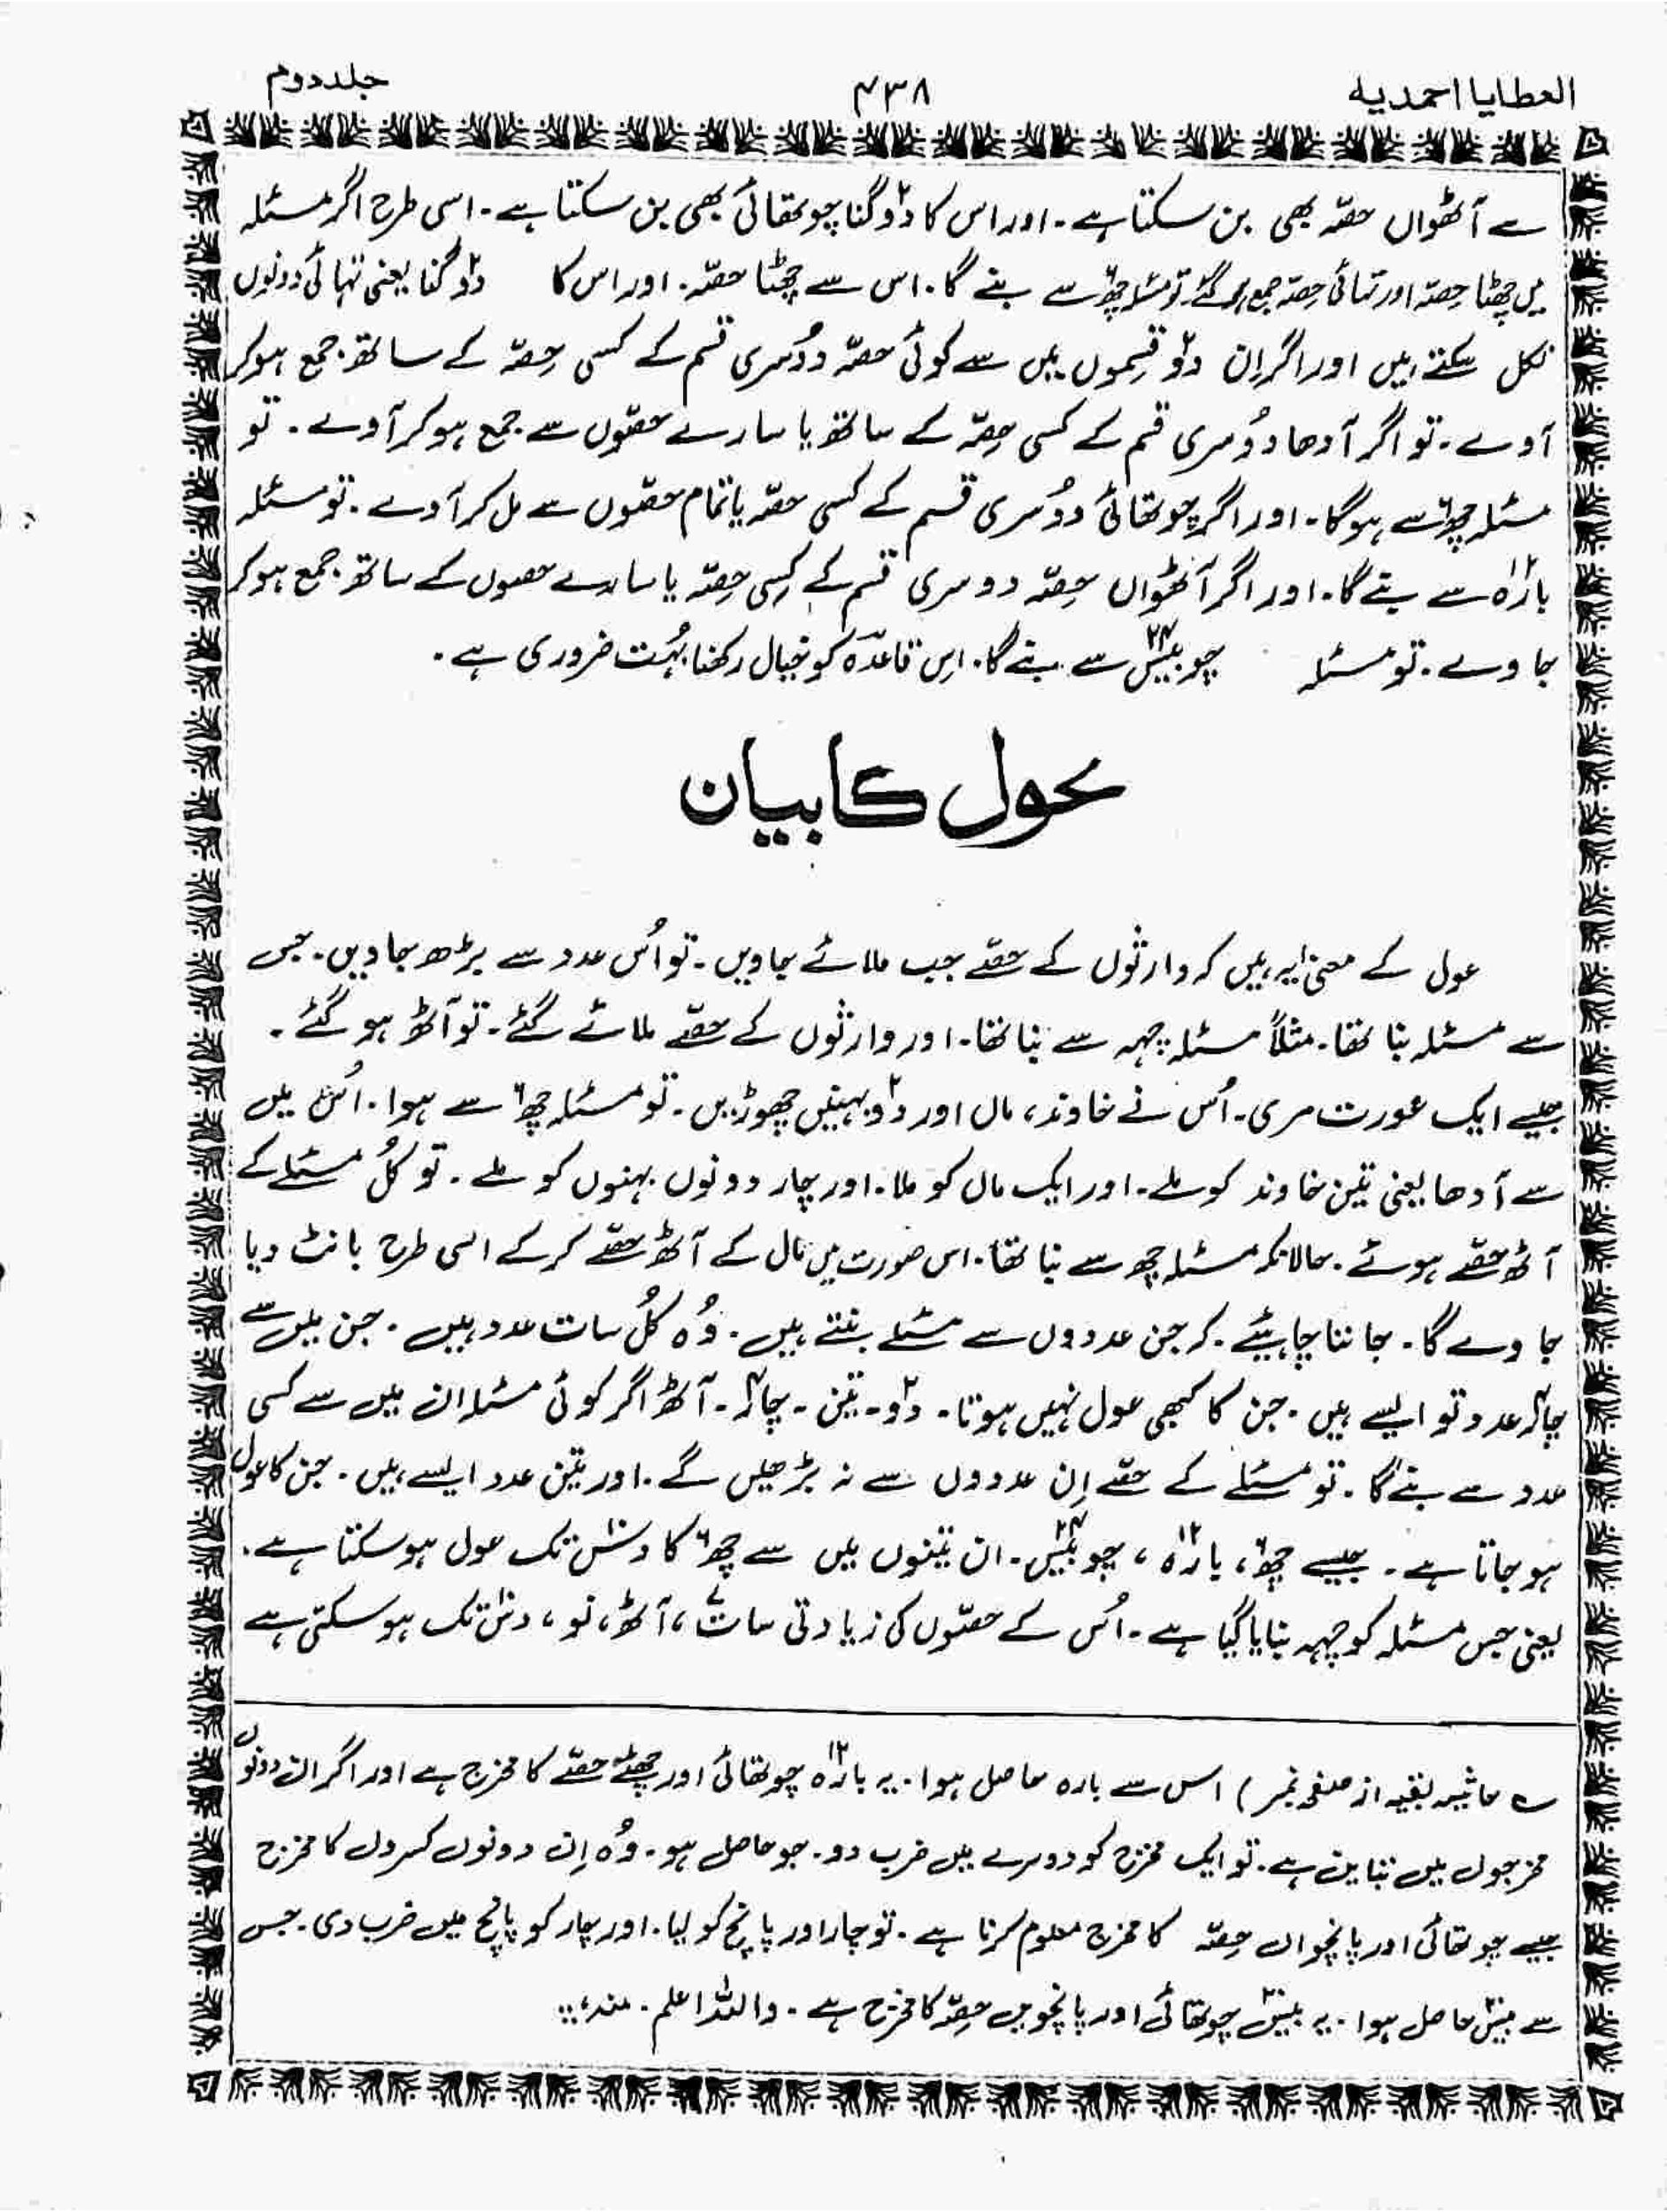 العطایا احمدیہ ۴۳۸ جلد دوم
سے آٹھواں حصّہ بھی بن سکتا ہے۔ اور اس کا دو۲ گنا چوتھائی بھی بن سکتا ہے۔ اسی طرح اگر مسئلہ
میں چھٹا حِصّہ اور تہائی حِصّہ جمع ہو گئے۔ تو مسئلہ چھ۶ سے بنے گا۔ اس سے چھٹا حصّہ۔ اور اس کا دو۲ گنا یعنی تہائی دونوں
نکل سکتے ہیں اور اگر اِن دو۲ قِسموں میں سے کوئی حصّہ دوُسری قسم کے کسی حِصّہ کے ساتھ جمع ہو کر
آوے۔ تو اگر آدھا دوُسری قسم کے کسی حِصّہ کے ساتھ یا سارے حصّوں سے جمع ہو کر آوے۔ تو
مسئلہ چھ۶ سے ہوگا۔ اور اگر چوتھائی دوُسری قسم کے کسی حصّہ یا تمام حصّوں سے مل کر آوے۔ تو مسئلہ
بارہ۱۲ سے بنے گا۔ اور اگر آٹھواں حِصّہ دوسری قسم کے کِسی حِصّہ یا سارے حصوں کے ساتھ جمع ہو کر
جاوے۔ تو مسئلہ چوبیس۲۴ سے بنے گا۔ اِس قاعدہ کو خیال رکھنا بہُت ضروری ہے۔
عول کا بیان
عول کے معنیٰ یہ ہیں کہ وارثوں کے حصّے جب ملائے جاویں۔ تو اُس عدد سے بڑھ جاویں۔ جس
سے مسئلہ بنا تھا۔ مثلاً مسئلہ چہہ سے بنا تھا۔ اور وارثوں کے حصّے ملائے گئے۔ تو آٹھ ہو گئے۔
جیسے ایک عورت مری۔ اُس نے خاوند، ماں اور دو۲ بہنیں چھوڑیں۔ تو مسئلہ چھ۶ سے ہوا۔ اُس میں
سے آدھا یعنی تین خاوند کو ملے۔ اور ایک ماں کو ملا۔ اور چار دونوں بہنوں کو ملے۔ تو کلُ مسئلے کے
آٹھ حصّے ہوئے۔ حالانکہ مسئلہ چھ سے بنا تھا۔ اس صورت میں مال کے آٹھ حصّے کر کے اسی طرح بانٹ دیا
جاوے گا۔ جاننا چاہیئے۔ کہ جن عددوں سے مسئلے بنتے ہیں۔ وُہ کلُ سات عدد ہیں۔ جن میں سے
چار۴ عدد تو ایسے ہیں۔ جن کا کبھی عول نہیں ہوتا۔ دو۲۔ تین۔ چار۴۔ آٹھ اگر کوئی مسئلہ ان میں سے کسی
عدد سے بنے گا۔ تو مسئلے کے حصّے اِن عددوں سے نہ بڑھیں گے۔ اور تین عدد ایسے ہیں۔ جن کا عول
ہو جاتا ہے۔ جیسے چھ۶، بارہ۱۲، چوبیس۲۴۔ ان تینوں میں سے چھ۶ کا دس۱۰ تک عول ہو سکتا ہے۔
یعنی جس مسئلہ کو چہہ بنایا گیا ہے۔ اُس کے حصّوں کی زیادتی سات۷، آٹھ، نو، دس۱۰ تک ہو سکتی ہے
؂ حاشیہ بقیہ از صفحہ نمبر) اس سے بارہ حاصل ہوا۔ یہ بارہ۱۲ چوتھائی اور چھٹے حصّے کا مخرج ہے اور اگر ان دونوں
مخرجوں میں تباین ہے۔ تو ایک مخرج کو دوسرے میں ضرب دو۔ جو حاصل ہو۔ وُہ اِن دونوں کسروں کا مخرج
جیسے چوتھائی اور پانچواں حِصّہ کا مخرج معلوم کرنا ہے۔ تو چار اور پانچ کو لیا۔ اور چار کو پانچ میں ضرب دی۔ جس
سے بیس۲۰ حاصل ہوا۔ یہ بیس۲۰ چوتھائی اور پانچویں حِصّہ کا مخرج ہے۔ واللہ اعلم۔ منہ،